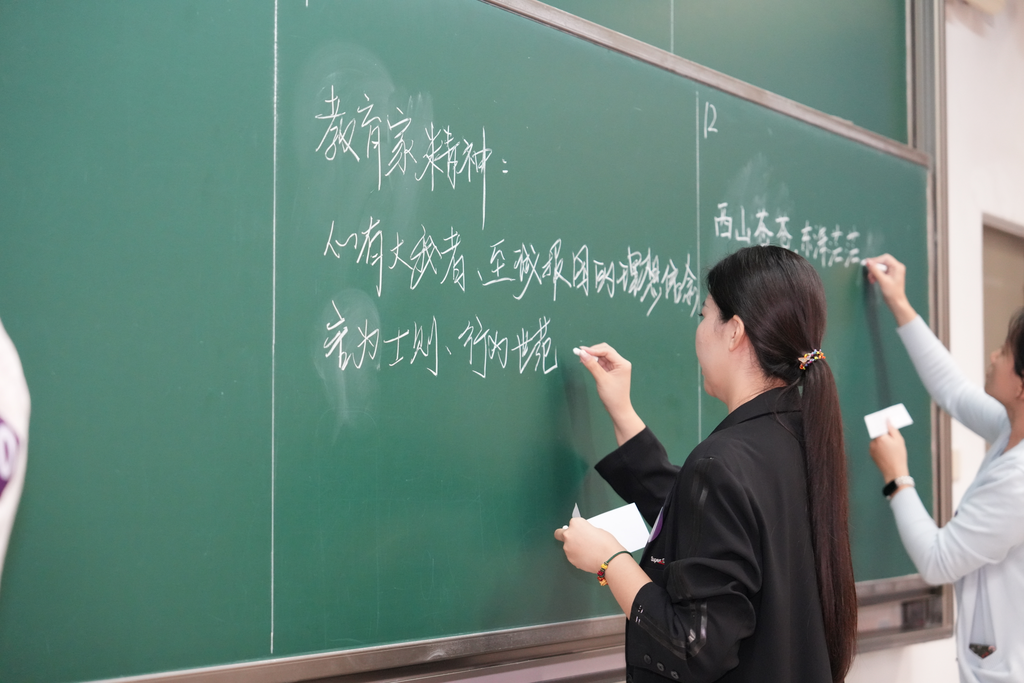 教育家精神:
心有大我者、至诚报国的理想信念
言为士则、行为世范
12
西山苍苍 东海茫茫